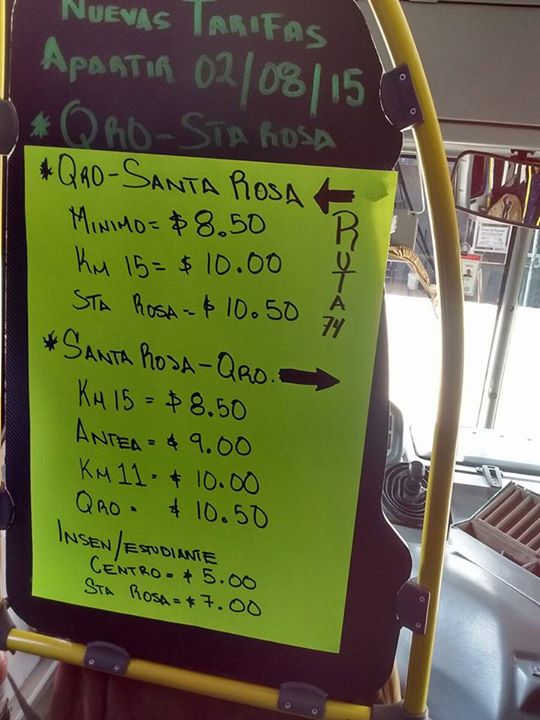 NUEVAS TARIFAS
APARTIR 02/08/15
* QRO-STA ROSA
* QRO-SANTA ROSA ←
MINIMO = $8.50
KM 15 = $10.00
STA ROSA = $10.50
RUTA 74
* SANTA ROSA-QRO. →
KM 15 = $8.50
ANTEA = $9.00
KM 11 = $10.00
QRO = $10.50
INSEN/ESTUDIANTE
CENTRO = $5.00
STA ROSA = $7.00